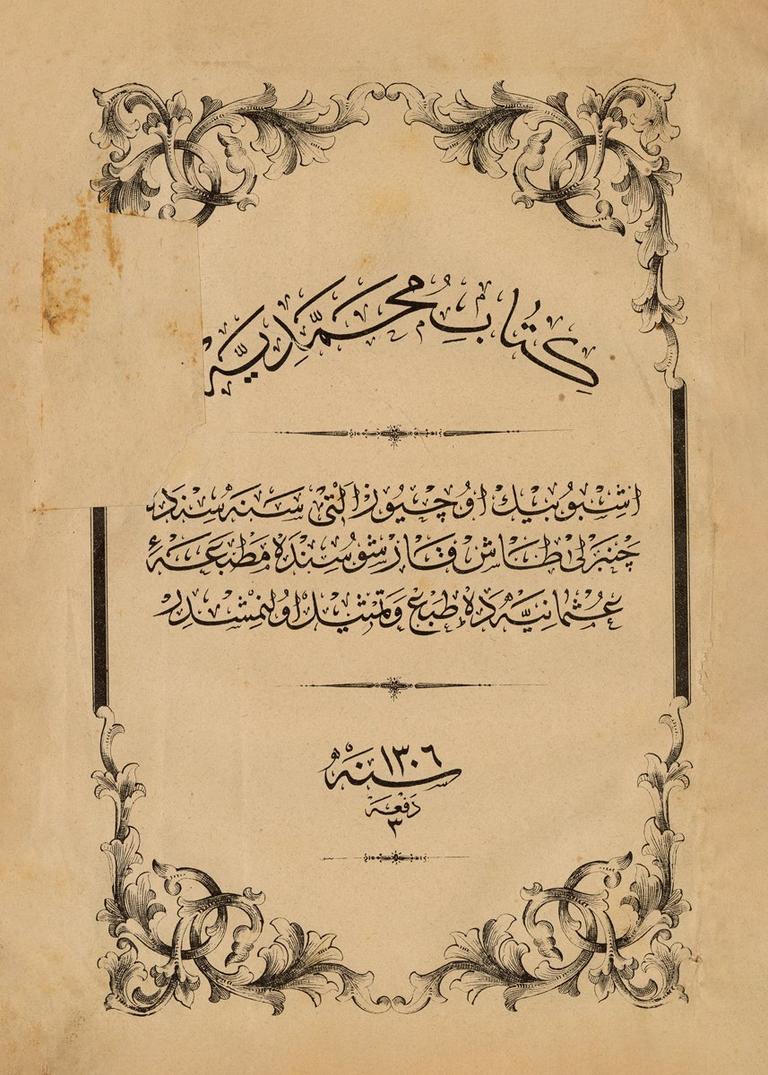 كتاب محمدیه
اشبو بیك اوچیوز التی سنه سنده
چنبرلی طاش قارشوسنده مطبعهٔ
عثمانیه ده طبع وتمثیل اولنمشدر
سنه ١٣٠٦
دفعه
٣